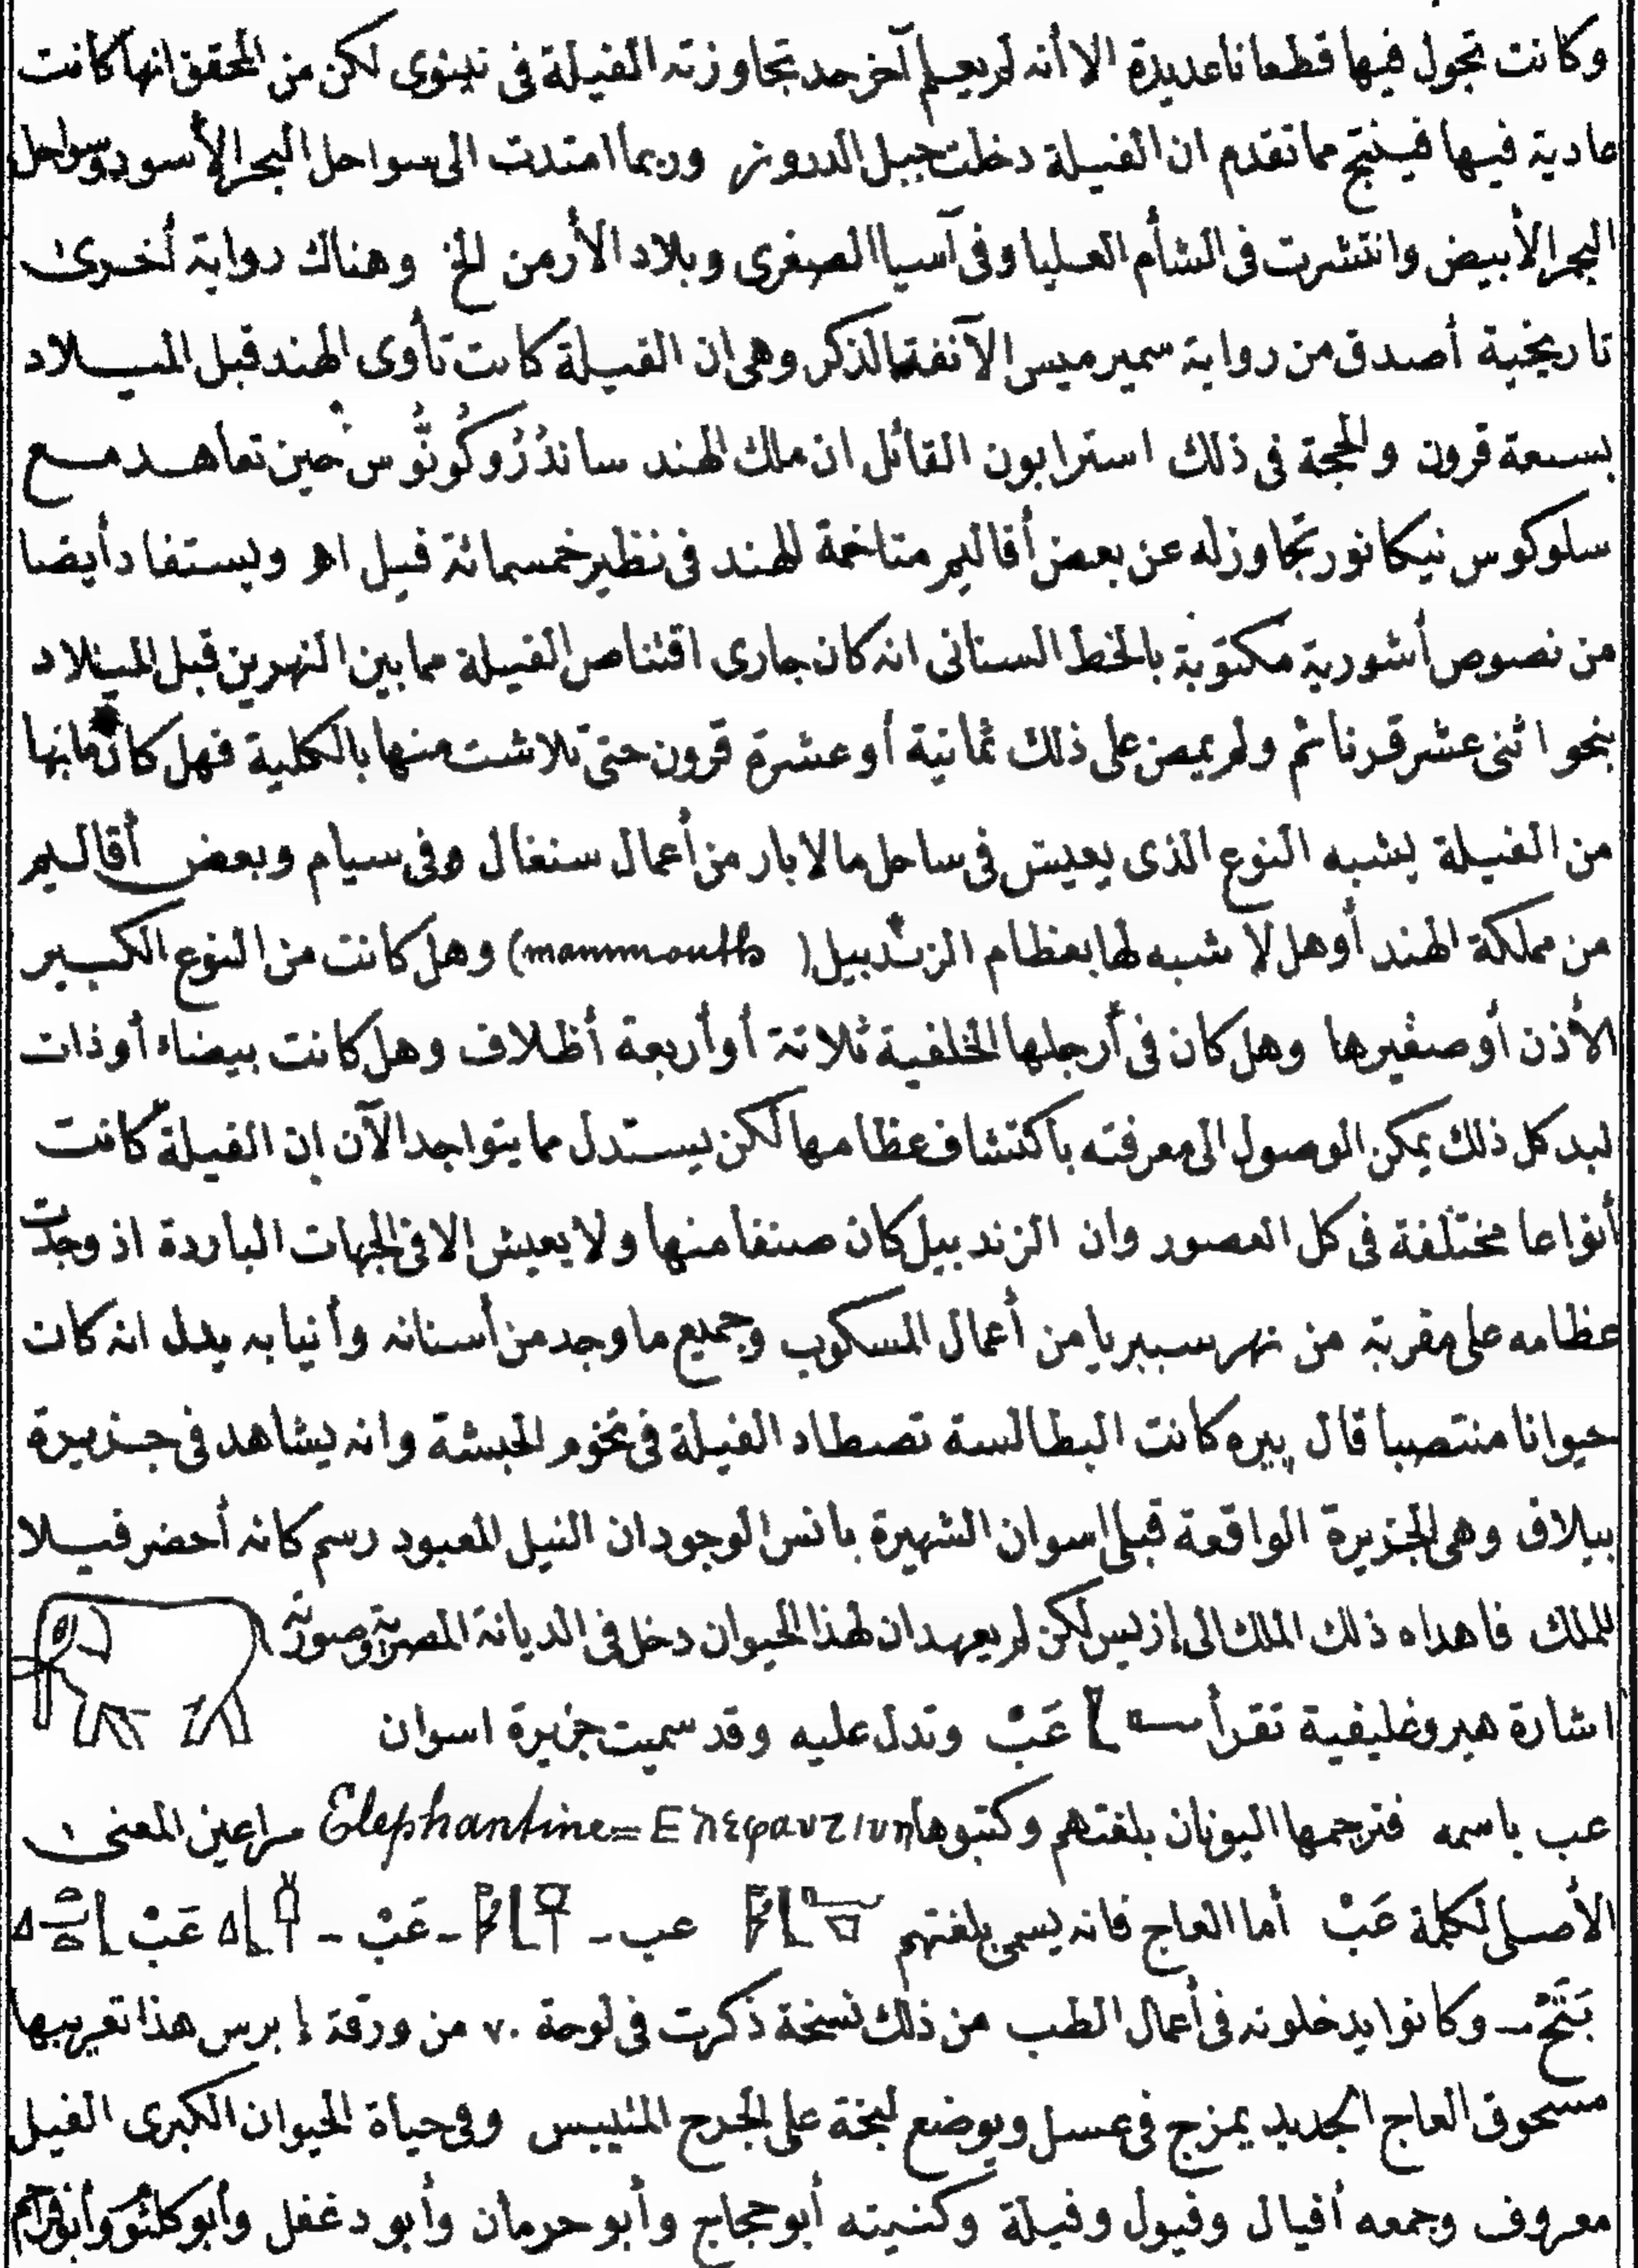 وكانت تجول فيها قطعانا عديدة الا أنه لم يعلم آخر حد تجاوزته الفيلة فى نينوى لكن من المحقق انها كانت
عادية فيها فينتج مما تقدم ان الفيلة دخلت جبل الدروز وربما امتدت الى سواحل البحر الأسود وسواحل
البحر الأبيض وانتشرت فى الشأم العليا وفى آسيا الصغرى وبلاد الأرمن الخ وهناك رواية أخرى
تاريخية أصدق من رواية سميرميس الآنفة الذكر وهى ان الفيلة كانت تأوى الهند قبل الميلاد
بسبعة قرون والحجة فى ذلك استرابون القائل ان ملك الهند ساندُرُوكُونُّوس حين تعاهد مع
سلوكوس نيكانور تجاوز له عن بعض أقاليم متاخمة للهند فى نظير خمسمائة فيل اهـ ويستفاد أيضا
من نصوص أشورية مكتوبة بالخط السنانى انه كان جارى اقتناص الفيلة مما بين النهرين قبل الميلاد
بنحو اثنى عشر قرنا ثم ولم يمض على ذلك ثمانية أو عشرة قرون حتى تلاشت منها بالكلية فهل كان مابها
من الفيلة يشبه النوع الذى يعيش فى ساحل مالابار من أعمال سنغال وفى سيام وبعض أقاليم
من مملكة الهند أو هل لا شبه لها بعظام الزندبيل (mammouth) وهل كانت من النوع الكبير
الأذن أو صغيرها وهل كان فى أرجلها الخلفية ثلاثة أو أربعة أظلاف وهل كانت بيضاء أو ذات
لبد كل ذلك يمكن الوصول الى معرفته باكتشاف عظامها لكن يستدل مما يتواجد الآن ان الفيلة كانت
أنواعا مختلفة فى كل العصور وان الزندبيل كان صنفا منها ولا يعيش الا فى الجهات الباردة اذ وجدت
عظامه على مقربة من نهر سيبريا من أعمال المسكوب وجميع ما وجد من أسنانه وأنيابه يدل انه كان
حيوانا منتصبا قال پيره كانت البطالسة تصطاد الفيلة فى تخوم الحبشة وانه يشاهد فى جزيرة
بيلاق وهى الجزيرة الواقعة قبلى اسوان الشهيرة بانس الوجود ان النيل المعبود رسم كانه أحضر فيلا
للملك فاهداه ذلك الملك الى إزيس لكن لم يعهد ان لهذا الحيوان دخل فى الديانة المصرية وصورته
اشارة هيروغليفية تقرأ عَبْ وتدل عليه وقد سميت جزيرة اسوان
عب باسمه فترجمها اليونان بلغتهم وكتبوها Elephantine=Ελεφαντινη مراعين المعنى
الأصلى لكلمة عَبْ أما العاج فانه يسمى بلغتهم عب - عَبْ - عَبْ
بَتَحْ - وكانوا يدخلونه فى أعمال الطب من ذلك نسخة ذكرت فى لوحة ٧٠ من ورقة إبرس هذا تعريبها
مسحوق العاج الجديد يمزج فى عسل ويوضع لبخة على الجرح المتيبس وفى حياة الحيوان الكبرى الفيل
معروف وجمعه أفيال وفيول وفيلة وكنيته أبو حجاج وأبو حرمان وأبو دغفل وأبو كلثوم وأبو مزاحم